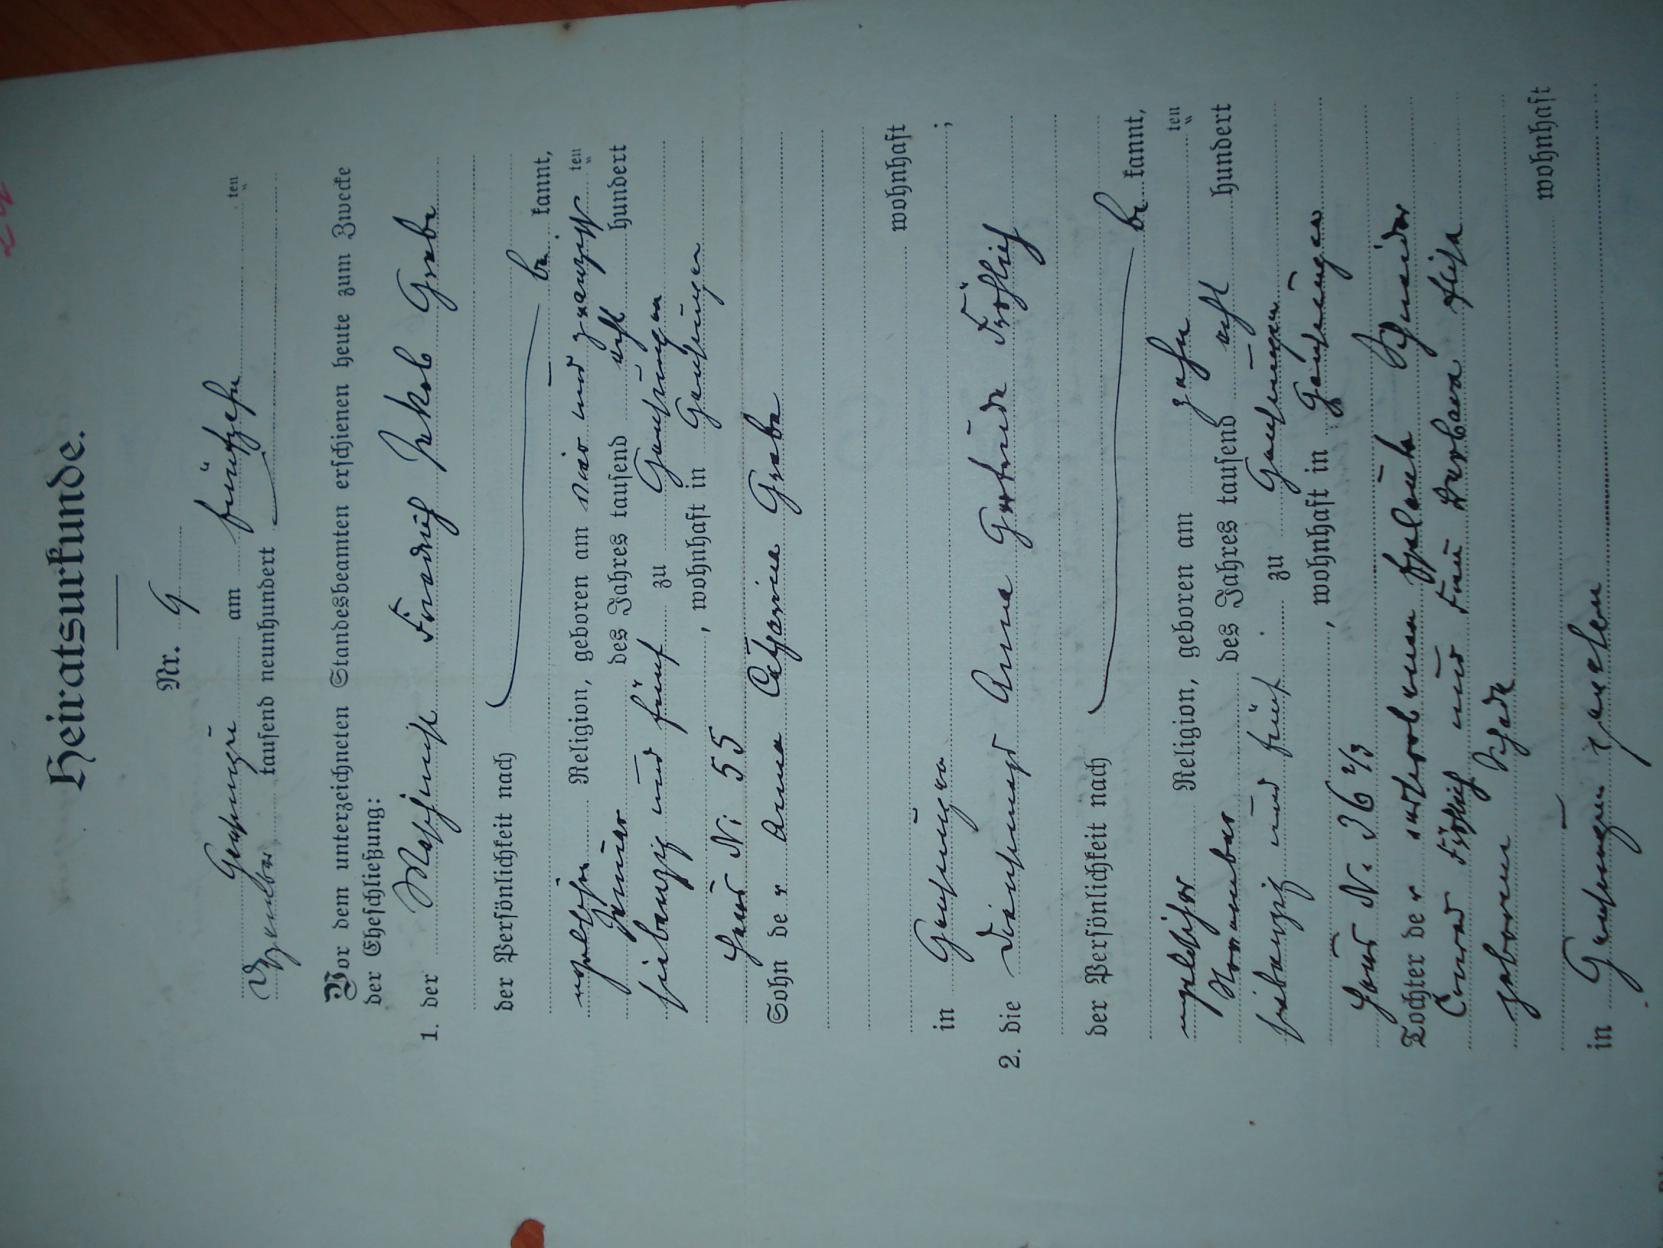 Heiratsurkunde.
Nr. 9
am fünfzehn ten
tausend neunhundert
Vor dem unterzeichneten Standesbeamten erschienen heute zum Zwecke
der Eheschließung:
1. der Friedrich Jakob Grebe
der Persönlichkeit nach
be kannt,
Religion, geboren am vier und zwanzigst ten
Januar des Jahres tausend acht hundert
siebenzig und fünf zu Gensungen
, wohnhaft in Gensungen
Haus N: 55
Sohn der Anna Catharina Grebe
wohnhaft
in Gensungen ;
2. die Dienstmagd Anna Gertrude Fröhlich
der Persönlichkeit nach
be kannt,
Religion, geboren am zehn ten
November des Jahres tausend acht hundert
siebenzig und fünf zu Gensungen
, wohnhaft in Gensungen
Haus N. 36 2/3
Tochter der verstorbenen Eheleute Schneider
Conrad Fröhlich und Frau Barbara Elise
geborene
wohnhaft
in Gensungen